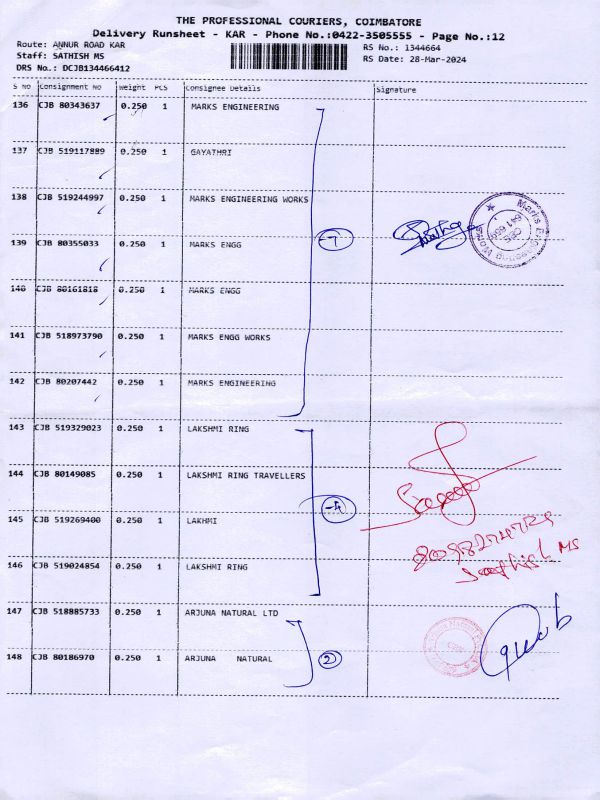 THE PROFESSIONAL COURIERS, COIMBATORE
Delivery Runsheet - KAR - Phone No.:0422-3505555 - Page No.:12
Route: ANNUR ROAD KAR
Staff: SATHISH MS
DRS No.: DCJB134466412
RS No.: 1344664
RS Date: 28-Mar-2024
S No Consignment No Weight PCS Consignee Details Signature
136 CJB 80343637 0.250 1 MARKS ENGINEERING
137 CJB 519117889 0.250 1 GAYATHRI
138 CJB 519244997 0.250 1 MARKS ENGINEERING WORKS
139 CJB 80355033 0.250 1 MARKS ENGG
140 CJB 80161818 0.250 1 MARKS ENGG
141 CJB 518973790 0.250 1 MARKS ENGG WORKS
142 CJB 80207442 0.250 1 MARKS ENGINEERING
-7
Marks Engineering Works
CBS
641 659
143 CJB 519329023 0.250 1 LAKSHMI RING
144 CJB 80149085 0.250 1 LAKSHMI RING TRAVELLERS
145 CJB 519269400 0.250 1 LAKHMI
146 CJB 519024854 0.250 1 LAKSHMI RING
-4
Sathish MS
147 CJB 518885733 0.250 1 ARJUNA NATURAL LTD
148 CJB 80186970 0.250 1 ARJUNA NATURAL
2